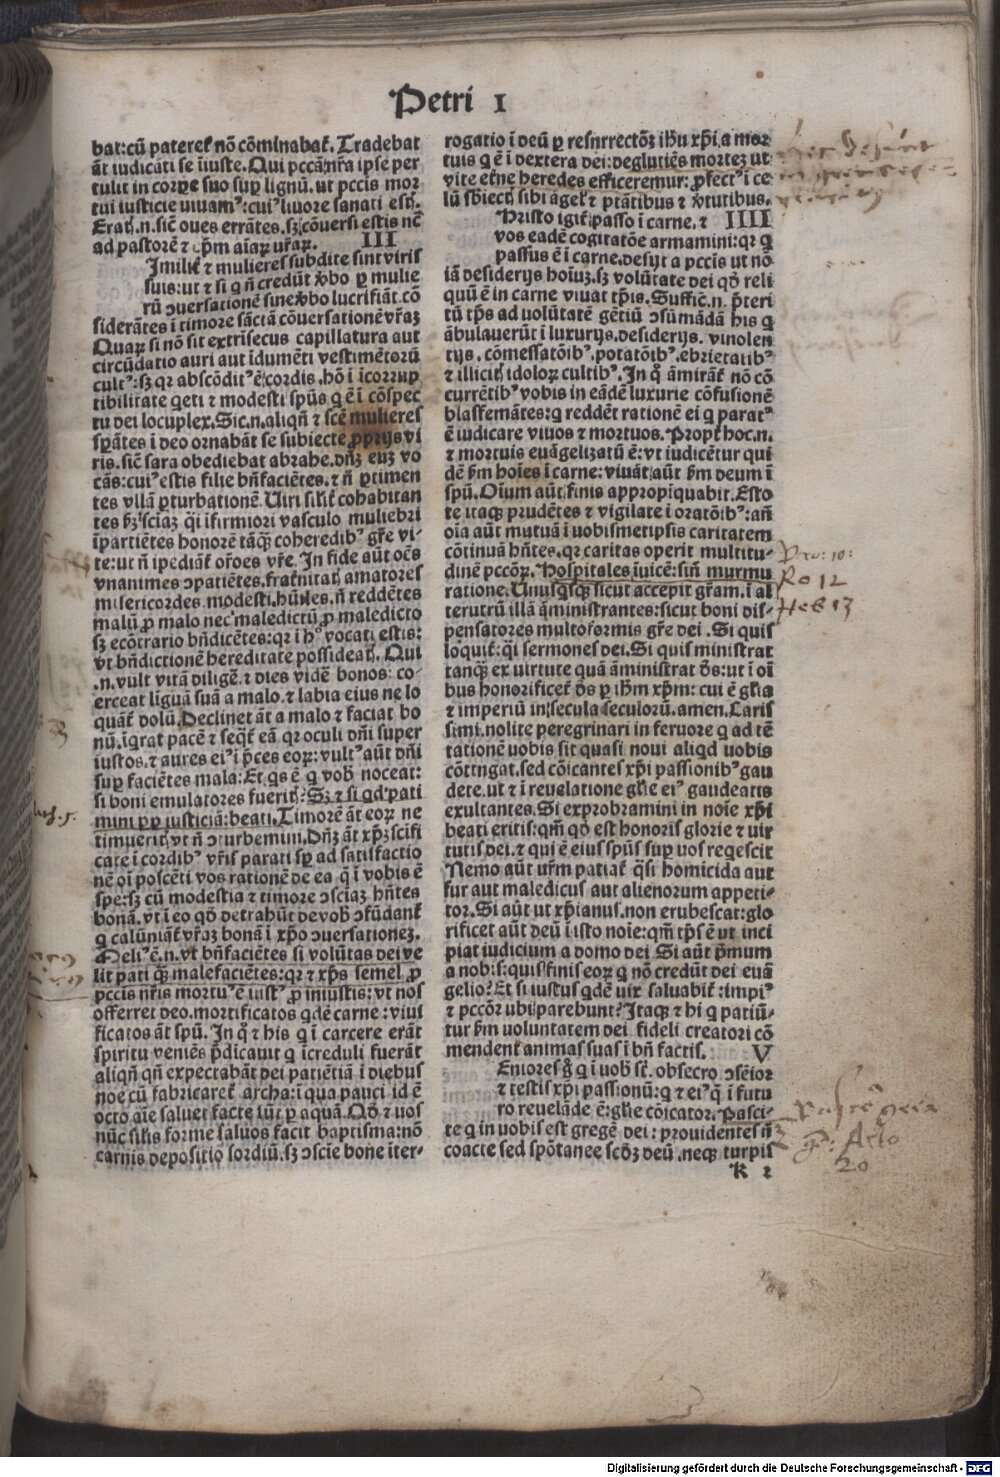 Petri 1
bat:cū patereꝉ nō cōminabaꝉ. Tradebat
āt iudicāti se īiuste. Qui pccā nr̄a ipse per
tulit in corpe suo suꝑ lignū. ut pccis mor
tui iusticie viuamꝰ: cuiꝰ liuore sanati estꝭ.
Eratꝭ .n. sic̄ oues errātes. sꝫ cōuersi estis nc̄
ad pastorē ⁊ ep̄m aīaꝝ vr̄aꝝ. III
Imiliꝉ ⁊ mulieres subdite sint viris
suis: ut ⁊ si q ñ credūt ꝟbo ꝑ mulie
rū ↄuersationē sine ꝟbo lucrifiāt. cō
siderātes ī timore sāctā cōuersationē vr̄aꝫ
Quaꝝ si nō sit extrīsecus capillatura aut
circūdatio auri aut īdumēti vestimētorū
cultꝰ: sꝫ qr abscōditꝰ ē cordis .hō ī īcorrup
tibilitate qeti ⁊ modesti sp̄us q ē ī cōspec
tu dei locuplex. Sic .n. aliqñ ⁊ scē mulieres
sꝑātes ī deo ornabāt se subiecte ꝓprijs vi
ris. sic̄ sara obediebat abrahe. dn̄ꝫ euꝫ vo
cās: cuiꝰ estis filie bn̄faciētes. ⁊ ñ ꝑtimen
tes vllā ꝑturbationē. Uiri sil̄iꝉ cohabitan
tes ẜm sciaꝫ q̄i īfirmiori vasculo muliebri
īpartiētes honorē tāqꝫ coheredibꝰ gr̄e vi
te: ut ñ īpediāꝉ or̄oes vr̄e. In fide aūt oēs
vnanimes ↄpatiētes. fraꝉnitatꝭ amatores
misericordes. modesti. hūiles. ñ reddētes
malū ꝓ malo nec maledictū ꝓ maledicto
sꝫ ecōtrario bn̄dicētes: qr ī hͦ vocati estis:
vt bn̄dictionē hereditate possideatꝭ. Qui
.n. vult vitā diligē. ⁊ dies vidē bonos: co-
erceat līguā suā a malo. ⁊ labia eius ne lo
quāꝉ dolū. Declinet āt a malo ⁊ faciat bo
nū. īqrat pacē ⁊ seqꝉ eā. qr oculi dn̄i super
iustos. ⁊ aures eiꝰ ī p̄ces eoꝝ: vultꝰ aūt dn̄i
suꝑ faciētes mala: Et qs ē q vob̄ noceat:
si boni emulatores fueritꝭ? Sꝫ ⁊ si qd pati
mini ꝓꝑ iusticiā: beati. Timorē āt eoꝝ ne
timueritꝭ vt ñ ↄturbemini. Dn̄ꝫ āt xp̄ꝫ scīfi
cate ī cordibꝰ vr̄is parati sꝑ ad satisfactio
nē oī poscēti vos rationē de ea q̄ ī vobis ē
spe: sꝫ cū modestia ⁊ timore ↄsciaꝫ hn̄tes
bonā. vt ī eo qd̄ detrahūt de vob̄ ↄfūdanꝉ
q calūniāꝉ vr̄aꝫ bonā ī xp̄o ↄuersationeꝫ.
Meliꝰ ē .n. vt bn̄faciētes si volūtas dei ve
lit pati qꝫ malefaciētes: qr ⁊ xp̄s semel ꝓ
pccis nr̄is mortuꝰ ē iustꝰ ꝓ iniustis: vt nos
offerret deo. mortificatos qdē carne: viui
ficatos āt spū. In q̄ ⁊ his q ī carcere erāt
spiritu veniēs p̄dicauit q īcreduli fuerāt
aliqñ qñ expectabāt dei patiētiā ī diebus
noe cū fabricareꝉ archa: ī qua pauci id ē
octo aīe salue facte sūt ꝑ aquā. Qd̄ ⁊ uos
nūc silis forme saluos facit baptisma: nō
carnis depositio sordiū. sꝫ ↄscīe bone īter-
rogatio ī deū ꝑ resurrectōꝫ ih̄u xp̄i. a mor
tuis q ē ī dextera dei: deglutiēs morteꝫ ut
vite eꝉne heredes efficeremur: ꝓfectꝰ ī ce
lū sb̄iectꝭ sibi āgelꝭ ⁊ ptātibus ⁊ ꝟtutibus.
Hristo igiꝉ passo ī carne. ⁊ IIII
vos eadē cogitatōe armamini: qr q
passus ē ī carne. desijt a pccis ut nō
iā desiderijs hoīuꝫ. sꝫ volūtate dei qd̄ reli
quū ē in carne viuat tp̄is. Suffic̄ .n. p̄teri
tū tp̄s ad uolūtatē gētiū ↄsūmādā his q
ābulauerūt ī luxurijs. desiderijs. vinolen
tijs. cōmessatōibꝰ. potatōibꝰ. ebrietatibꝰ
⁊ illicitꝭ idoloꝝ cultibꝰ. In q̄ āmirāꝉ nō cō
currētibꝰ vobis in eādē luxurie cōfusionē
blasfemātes: q reddēt rationē ei q paratꝰ
ē iudicare viuos ⁊ mortuos. Propꝉ hoc .n.
⁊ mortuis euāgelizatū ē: vt iudicētur qui
dē ẜm hoīes ī carne: viuāt aūt ẜm deum ī
spū. Oīum aūt finis appropīquabit. Esto
te itaqꝫ prudētes ⁊ vigilate ī oratōibꝰ: añ
oīa aūt mutuā ī uobismetipsis caritatem
cōtinuā hn̄tes. qr caritas operit multitu-
dinē pccōꝝ. Hospitales īuicē: siñ murmu
ratione. Unusqsqꝫ sicut accepit gr̄am. ī al
terutrū illā āministrantes: sicut boni dis-
pensatores multoformis gr̄e dei. Si quis
loquiꝉ: q̄i sermones dei. Si quis ministrat
tanqꝫ ex uirtute quā āministrat d̄s: ut ī oī
bus honorificeꝉ d̄s ꝑ ih̄m xp̄m: cui ē gl̄ia
⁊ imperiū in secula seculorū. amen. Caris
simi. nolite peregrinari in feruore q ad tē
tationē uobis fit quasi noui aliqd uobis
cōtingat. sed cōicantes xp̄i passionibꝰ gau
dete. ut ⁊ ī reuelatione gl̄ie eiꝰ gaudeatis
exultantes. Si exprobramini in noīe xp̄i
beati eritis: qm̄ qd̄ est honoris glorie ⁊ uir
tutis dei. ⁊ qui ē eius sp̄us suꝑ uos reqescit
Nemo aūt ur̄m patiaꝉ q̄si homicida aut
fur aut maledicus aut alienorum appeti-
tor. Si aūt ut xp̄ianus. non erubescat: glo
rificet aūt deū ī isto noīe: qm̄ tp̄s ē ut inci
piat iudicium a domo dei Si aūt p̄mum
a nobis: quis finis eoꝝ q nō credūt dei euā
gelio? Et si iustus qdē uix saluabiꝉ: impiꝰ
⁊ pccōr ubi parebunt? Itaqꝫ ⁊ hi q patiū-
tur ẜm uoluntatem dei fideli creatori cō
mendenꝉ animas suas ī bn̄ factis. V
Eniores gͦ q ī uob̄ sꝉ. obsecro ↄsēior
⁊ testis xp̄i passionū: q ⁊ eiꝰ q̄ ī futu
ro reuelāde ē: gl̄ie cōicator. Pasci-
te q in uobis est gregē dei: prouidentes ñ
coacte sed spōtanee scd̄ꝫ deū. neqꝫ turpis
K 2
Pro: 10:
Ro 12
Heb 13
Acto
20
Digitalisierung gefördert durch die Deutsche Forschungsgemeinschaft - DFG